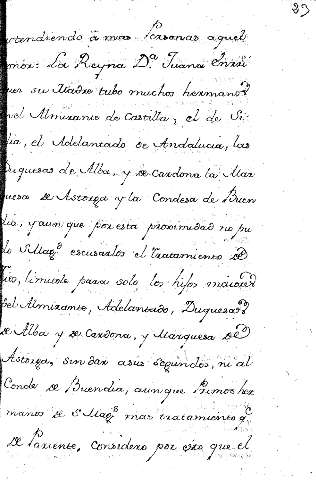 23
xtendiendo â mas Personas aquel
onor: La Reyna D.ª Juana Enri
ues su Madre tubo muchos hermanos
el Almirante de Castilla, el de Si
lia, el Adelantado de Andalucia, las
Duquesas de Alba, y de Cardona la Mar
quesa de Astorga y la Condesa de Buen
dia, y aunque por esta proximidad no pu
do S Mag.d escusarlos el tratamiento de
Tio, limite para solo los hijos maiores
del Almirante, Adelantado, Duquesas
de Alba y de Cardona, y Marquesa de
Astorga, sin dar a sus segundos, ni al
Conde de Buendia, aunque Primos her
manos de S Mag.d mas tratamiento q.e
de Pariente, Considero por esto que el